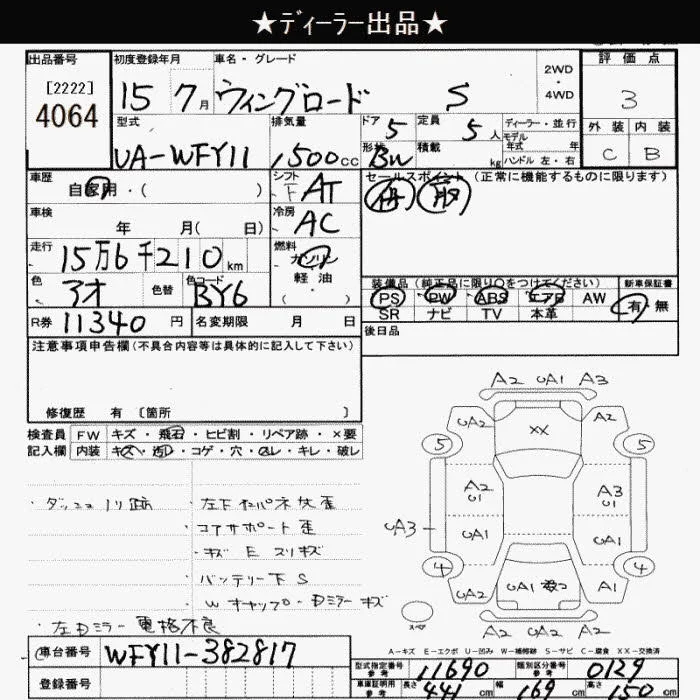 ★ディーラー出品★
出品番号
[2222]
4064
初度登録年月
15 7月
車名・グレード
ウィングロード S
2WD
・
4WD
評価点
3
外装 内装
C B
型式
UA-WFY11
排気量
1,500cc
ドア 5
形状 BW
定員 5人
積載 kg
ディーラー・並行
モデル年式 年
ハンドル 左・右
車歴
自家用・( )
シフト
F AT
セールスポイント(正常に機能するものに限ります)
車検
年 月( 日)
冷房
AC
走行
15万6千210km
燃料
ガソリン
軽油
( )
色
アオ
色替
色コード
BY6
装備品(純正品に限り○をつけてください)
PS PW ABS エアB AW
SR ナビ TV 本革
新車保証書
有・無
R券 11340円
名変期限 月 日
後日品
注意事項申告欄(不具合内容等は具体的に記入して下さい)
修復歴 有 〔箇所 〕
検査員記入欄
FW キズ・飛石・ヒビ割・リペア跡・×要
内装 キズ・汚レ・コゲ・穴・スレ・キレ・破レ
・左下インパネ枝歪
・コアサポート歪
・キズ E スリキズ
・バッテリー下 S
・左Dミラー電格不良
A2 UA1 A3
UA2 XX A2
5 5
A2
U1
A3
U1
UA3
UA1 UA1
4 4
UA2 UA1 A1
UA2 A2 UA2
スペア
A-キズ E-エクボ U-凹み W-補修跡 S-サビ C-腐食 XX-交換済
車台番号 WFY11-382817
登録番号
型式指定番号 参考 11690
類別区分番号 参考 0129
車庫証明用 参考 長さ 441cm 幅 169cm 高さ 150cm